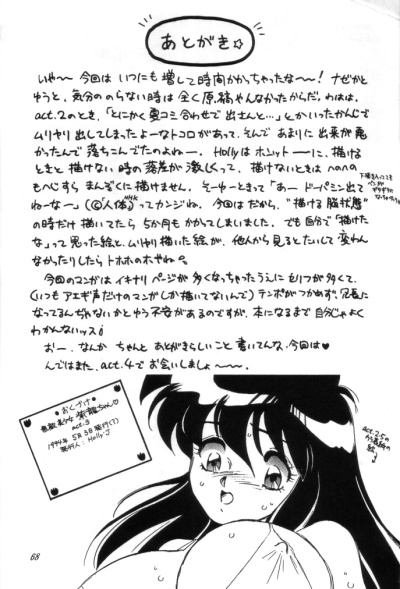 あとがき☆
いやー 今回は いつにも 増して 時間かかっちゃったなー! ナゼかと
ゆうと、気分の のらない時は 全く 原稿やんなかったからだ。わはは。
act.2のとき、「とにかく 夏コミ合わせで 出さんと…」とかいったかんじで
ムリヤリ 出してしまったよーなトコロがあって、そんで あまりに 出来が悪
かったんで 落ちこんでたのよねー。Hollyは ホンットーーに、描ける
ときと 描けない 時の 落差が 激しくって、描けないときは へのへの
もへじすら まんぞくに 描けません。そーゆーときって「あー ドーパミン出て
ねーなー」(©人体)ってカンジね。今回は だから、"描ける 脳状態"
の時だけ 描いてたら 5か月も かかってしまいました。でも自分で「描けた
な」って思った絵と、ムリヤリ描いた絵が、他人から見るとたいして 変わん
なかったりしたら トホホのホでやね。
今回のマンガは イキナリ ページが 多くなっちゃったうえに セリフが 多くて、
(いつも アエギ声だけの マンガしか 描いてないんで) テンポが つかめず、冗長に
なってるんぢゃないかと ゆう 不安が あるのですが、本になるまで 自分じゃよく
わかんないッスね
おー、なんか ちゃんと あとがきらしいこと 書いてんな、今回は♥
んでは また、act.4で お会いしましょ〜〜。
•おくづけ•
act.3
1994年 5月3日発行(?)
発行人: Holly J
act.2.5の
68